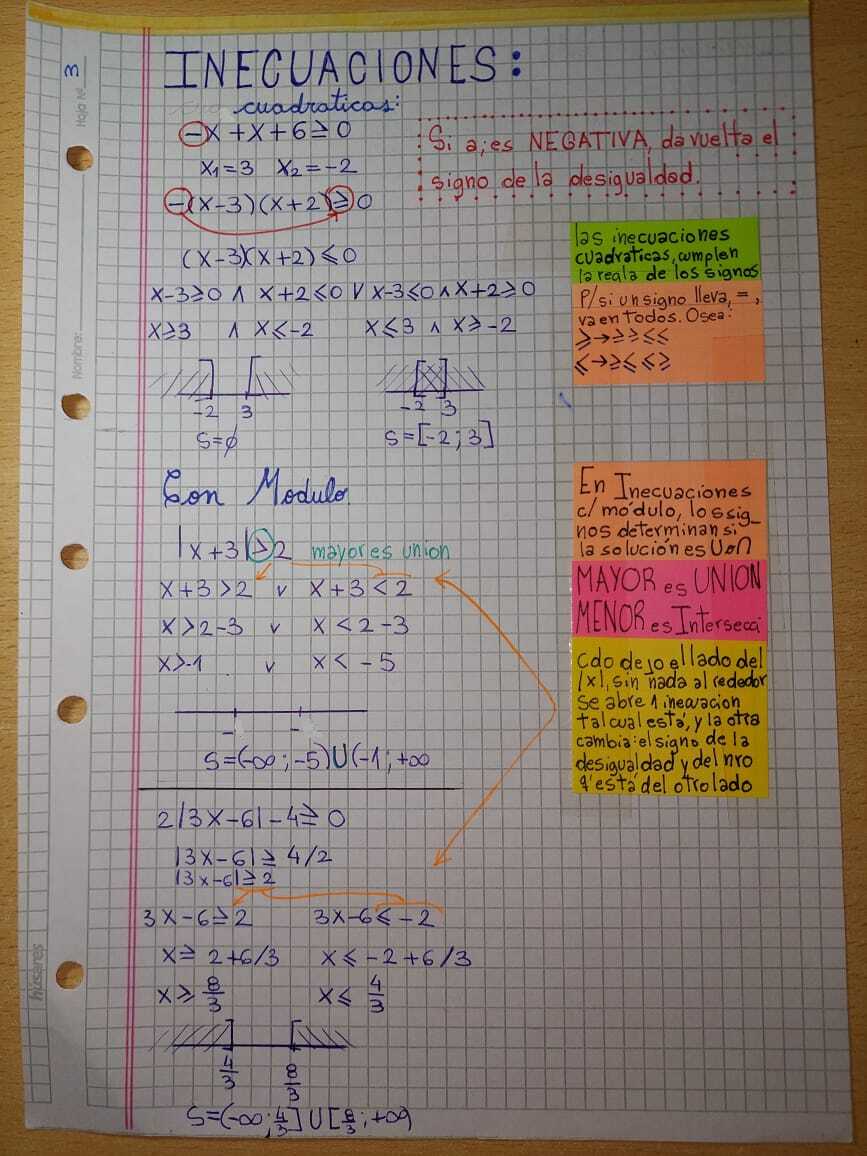 3
Hoja Nº
INECUACIONES:
cuadraticas:
-X+X+6≥0
X₁=3 X₂=-2
-(X-3)(X+2)≥0
Si a, es NEGATIVA, da vuelta el
signo de la desigualdad.
(X-3)(X+2)≤0
X-3≥0 ∧ X+2≤0 V X-3≤0 ∧ X+2≥0
X≥3 ∧ X≤-2 X≤3 ∧ X≥-2
-2 3 -2 3
S=ϕ S=[-2;3]
las inecuaciones
cuadraticas, cumplen
la regla de los signos
P/si un signo lleva, =,
va en todos. Osea:
≥→≥≥≤≤
≤→≥≤≤≥
Nombre:
Con Modulo
|X+3|>2 mayor es union
X+3>2 v X+3<2
X>2-3 v X<2-3
X>-1 v X<-5
S=(-∞;-5)U(-1;+∞
En Inecuaciones
c/módulo, los sig_
nos determinan si
la solución es U o ∩
MAYOR es UNION
MENOR es Interseca
Cdo dejo el lado del
|x|, sin nada al rededor
se abre 1 inewacion
tal cual está, y la otra
cambia: el signo de la
desigualdad y del nro
q'está del otro lado
2|3X-6|-4≥0
|3X-6|≥4/2
|3X-6|≥2
3X-6≥2 3X-6≤-2
X≥2+6/3 X≤-2+6/3
X≥8/3 X≤4/3
4/3 8/3
S=(-∞;4/3]U[8/3;+∞)
húsares